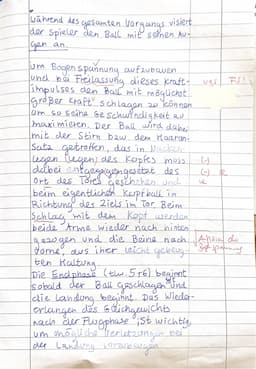 während des gesamten Vorgangs visiert
der Spieler den Ball mit seinen Au-
gen an.
um Bogenspannung aufzubauen
und bei Freilassung dieses Kraft-
impulses den Ball mit möglichst
großer Kraft schlagen zu können
um so seine Geschwindigkeit zu
maximieren. Der Ball wird dabei
mit der Stirn bzw. dem Haaran-
satz getroffen, das in Nacken
legen des Kopfes muss
dabei entgegengesetzt des
Ort des Tores geschehen und
beim eigentlichen Kopfball in
Richtung des Ziels im Tor. Beim
Schlag mit dem Kopf werden
beide Arme wieder nach hinten
gezogen und die Beine nach
vorne, aus ihrer leicht gebeug-
ten Haltung.
Die Endphase (tw. 5+6) beginnt
sobald der Ball geschlagen und
die Landung beginnt. Das Wieder-
erlangen des Gleichgewichts
nach der Flugphase ist wichtig,
um mögliche Verletzungen bei
der Landung vorzubeugen
(-)
(-) R